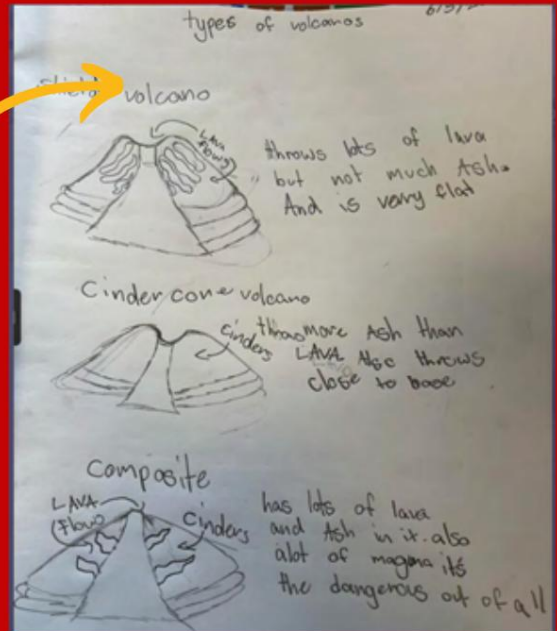 types of volcanos
Shield volcano
LAVA
flows
throws lots of lava
but not much Ash.
And is verry flat
Cinder cone volcano
cinders
throws more Ash than
LAVA Also throws
close to base
Composite
LAVA
(flow)
cinders
has lots of lava
and Ash in it. also
alot of magma its
the dangerous out of all